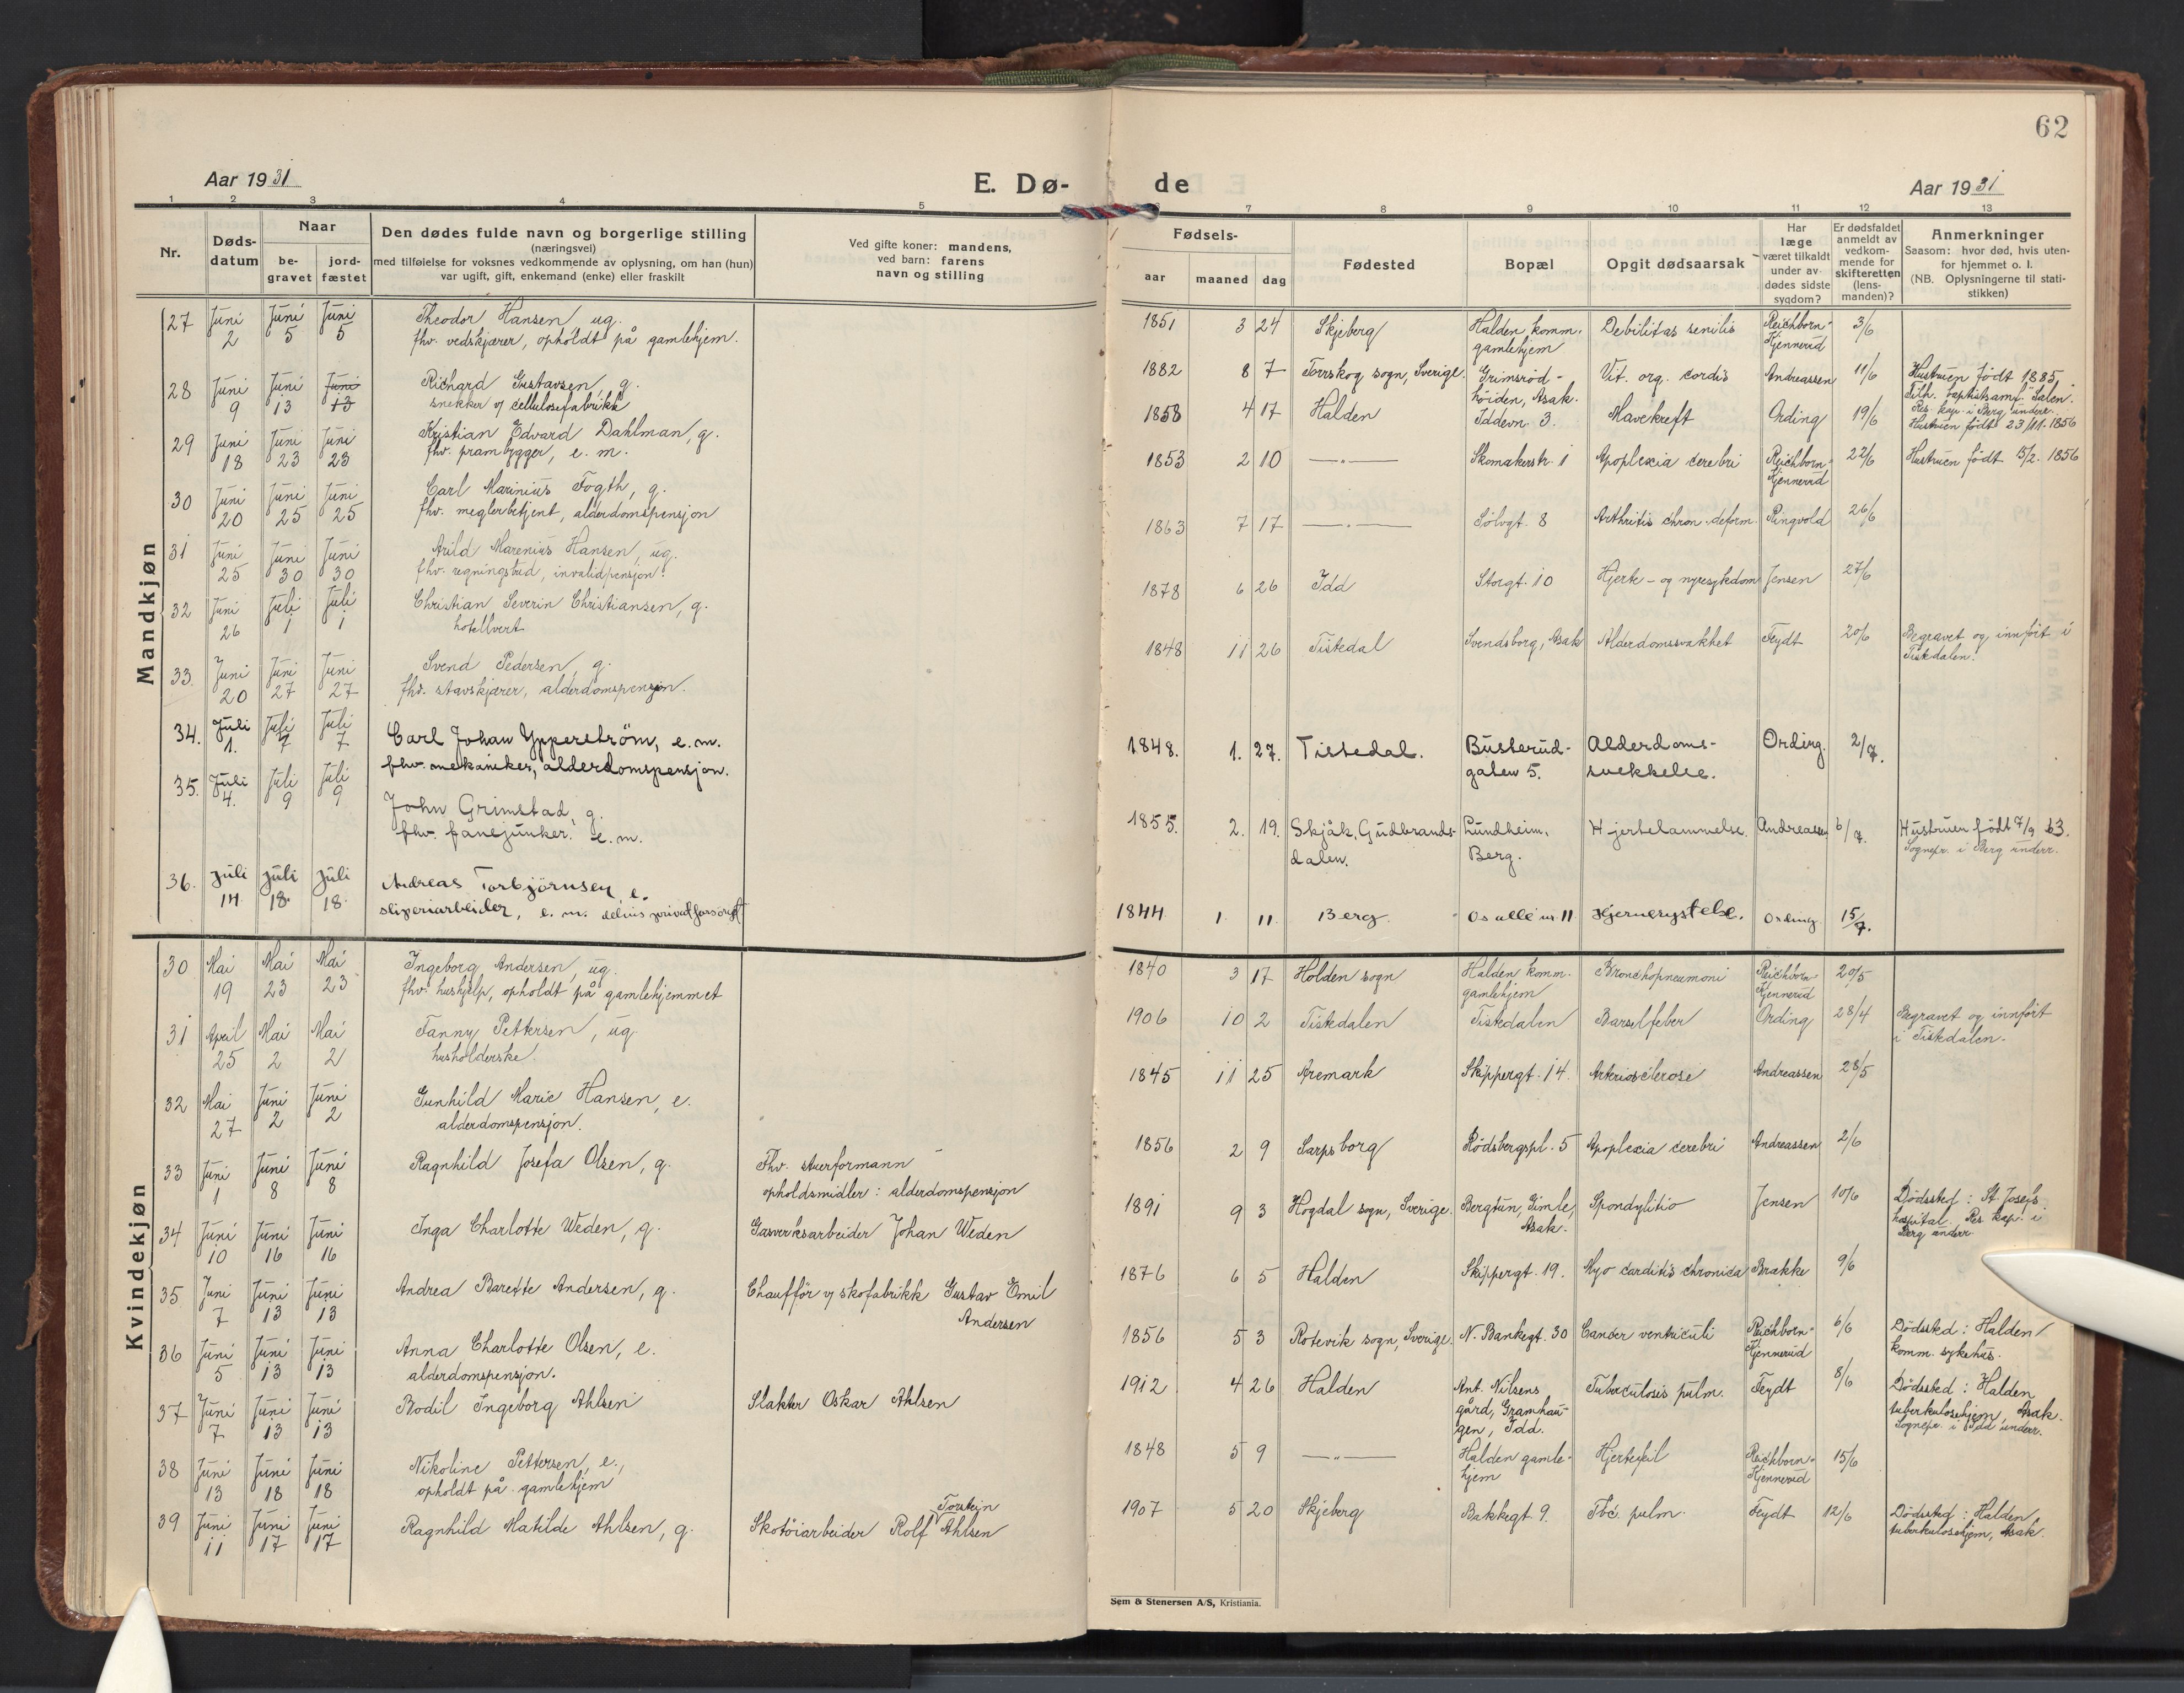 62
Aar 1931
E. Dø- de
Aar 1931
1 2 3 4 5 7 8 9 10 11 12 13
Nr.
Døds-
datum
Naar
be-
gravet
jord-
fæstet
Den dødes fulde navn og borgerlige stilling
(næringsvei)
med tilføielse for voksnes vedkommende av oplysning, om han (hun)
var ugift, gift, enkemand (enke) eller fraskilt
Ved gifte koner: mandens,
ved barn: farens
navn og stilling
Fødsels-
aar maaned dag
Fødested
Bopæl
Opgit dødsaarsak
Har
læge
været tilkaldt
under av-
dødes sidste
sygdom?
Er dødsfaldet
anmeldt av
vedkom-
mende for
skifteretten
(lens-
manden)?
Anmerkninger
Saasom: hvor død, hvis uten-
for hjemmet o. l.
(NB. Oplysningerne til stati-
stikken)
Mandkjøn
27 Juni 2 Juni 5 Juni 5 Theodor Hansen, ug.
fhv. vedskjærer, opholdt på gamlehjem.
1851 3 24 Skjeberg Halden komm. gamlehjem Debilitas senilis Reichborn-Kjennerud 3/6
28 Juni 9 Juni 13 Juni 13 Richard Gustavsen, g.
snekker v/ cellulosefabrikk
1882 8 7 Torrskog sogn, Sverige. Grimsrød-høiden, Asak. Vit. org. cordis Andreassen 11/6 Hustruen født 1885,
Tilh. baptistsamf. Salen.
Res. kap. i Berg underr.
29 Juni 18 Juni 23 Juni 23 Kristian Edvard Dahlman, g.
fhv. prambygger, e. m.
1858 4 17 Halden Iddevn. 3. Mavekreft Ording 19/6 Hustruen født 23/11. 1856
30 Juni 20 Juni 25 Juni 25 Carl Marinius Fogth, g.
fhv. meglerbetjent, alderdomspensjon
1853 2 10 —"— Skomakerstr. 1 Apoplexia cerebri Reichborn-Kjennerud 22/6 Hustruen født 15/2. 1856
31 Juni 25 Juni 30 Juni 30 Arild Marenius Hansen, ug.
fhv. regningsbud, invalidpensjon.
1863 7 17 —"— Sølvgt. 8 Arthritis chron. deform. Ringvold 26/6
32 Juni 26 Juli 1 Juli 1 Christian Severin Christiansen, g.
hotellvert
1878 6 26 Idd Storgt. 10 Hjerte- og nyresykdom Jensen 27/6
33. Juni 20 Juni 27 Juni 27 Svend Pedersen, g.
fhv. stavskjærer, alderdomspensjon.
1848 11 26 Tistedal Svendsborg, Asak Alderdomssvakhet Feydt 20/6 Begravet og innført i
Tistedalen.
34. Juli 1. Juli 7 Juli 7 Carl Johan Ypperström, e. m.
fhv. mekaniker, alderdomspensjon.
1848. 1. 27. Tistedal. Busterud-galen 5. Alderdoms-svekkelse. Ording. 2/7.
35. Juli 4. Juli 9 Juli 9 John Grimstad, g.
fhv. fanejunker. e. m.
1855. 2. 19. Skjåk, Gudbrands-dalen. Lundheim, Berg. Hjertelammelse. Andreasen 6/7. Hustruen født 7/9 63.
Sognepr. i Berg underr.
36. Juli 14 Juli 18. Juli 18 Andreas Torbjörnsen, e.
sliperiarbeider, e. m. delvis privat forsørget
1844 1 11 Berg. Os allé nr. 11 Hjernerystelse. Ording. 15/7.
Kvindekjøn
30 Mai 19 Mai 23 Mai 23 Ingeborg Andersen, ug.
fhv. hushjelp, opholdt på gamlehjemmet
1840 3 17 Holden sogn Halden komm. gamlehjem Bronchopneumoni Reichborn-Kjennerud 20/5
31 April 25 Mai 2 Mai 2 Fanny Pettersen, ug
husholderske.
1906 10 2 Tistedalen Tistedalen Barselfeber Ording 28/4 Begravet og innført
i Tistedalen.
32 Mai 27 Juni 2 Juni 2 Gunhild Marie Hansen, e.
alderdomspensjon.
1845 11 25 Aremark Skippergt. 14. Arteriosclerose Andreassen 28/5
33 Juni 1 Juni 8 Juni 8 Ragnhild Josefa Olsen, g. Fhv. stuerformann
opholdsmidler: alderdomspensjon
1856 2 9 Sarpsborg Rødsbergspl. 5 Apoplexia cerebri Andreassen 2/6
34 Juni 10 Juni 16 Juni 16 Inga Charlotte Weden, g. Gasverksarbeider Johan Weden
1891 9 3 Hogdal sogn, Sverige. Bergtun, Gimle, Asak. Spondylitio Jensen 10/6 Dödssted: St. Josefs
hospital. Res. kap. i
Berg underr.
35 Juni 7 Juni 13 Juni 13 Andrea Barette Andersen, g. Chauffør v/ skofabrikk Gustav Emil
Andersen
1876 6 5 Halden Skippergt. 19. Myo carditis chronica Brække 9/6
36 Juni 5 Juni 13 Juni 13 Anna Charlotte Olsen, e.
alderdomspensjon.
1856 5 3 Rotevik sogn, Sverige. N. Bankegt. 30 Cancer ventriculi Reichborn-Kjennerud 6/6 Dödssted: Halden
komm. sykehus.
37 Juni 7 Juni 13 Juni 13 Bodil Ingeborg Ahlsen Slakter Oskar Ahlsen
1912 4 26 Halden Ant. Nilsens gård, Gramhau-gen, Idd. Tuberculosis pulm. Feydt 8/6 Dödssted: Halden
tuberkulosehjem, Asak.
Sognepr. i Idd underr.
38 Juni 13 Juni 18 Juni 18 Nikoline Pettersen, e.,
opholdt på gamlehjem
1848 5 9 —"— Halden gamle-hjem Hjertefeil Reichborn-Kjennerud 15/6
39 Juni 11 Juni 17 Juni 17 Ragnhild Matilde Ahlsen, g. Skotøiarbeider Rolf Torstein Ahlsen
1907 5 20 Skjeberg Bakkegt 9. Tbc. pulm. Feydt 12/6 Dödssted: Halden
tuberkulosehjem, Asak.
Sem & Stenersen A/S, Kristiania.